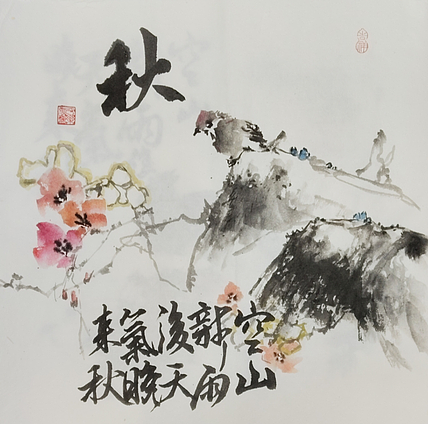 秋
空山
新雨
後天
氣晚
來秋